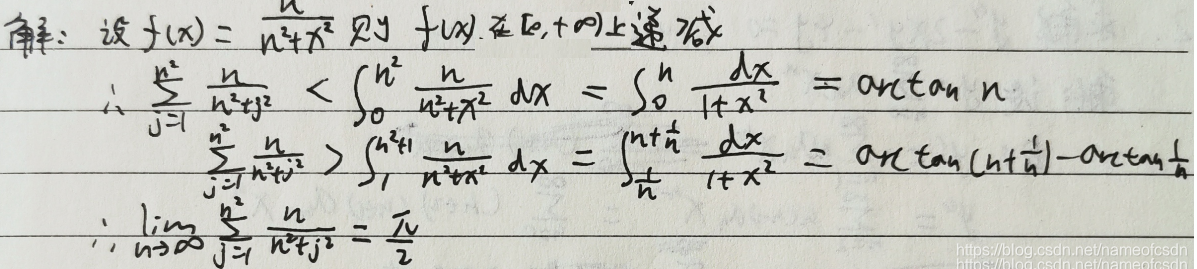 解：设 f(x) = n/(n²+x²) 则 f(x) 在 [0, +∞) 上递减
∴ ∑_{j=1}^{n²} n/(n²+j²) < ∫_0^{n²} n/(n²+x²) dx = ∫_0^n dx/(1+x²) = arctan n
∑_{j=1}^{n²} n/(n²+j²) > ∫_1^{n²+1} n/(n²+x²) dx = ∫_{1/n}^{n+1/n} dx/(1+x²) = arc tan(n+1/n) - arctan 1/n
∴ lim_{n→∞} ∑_{j=1}^{n²} n/(n²+j²) = π/2
https://blog.csdn.net/nameofcsdn
https://blog.csdn.net/nameofcsdn